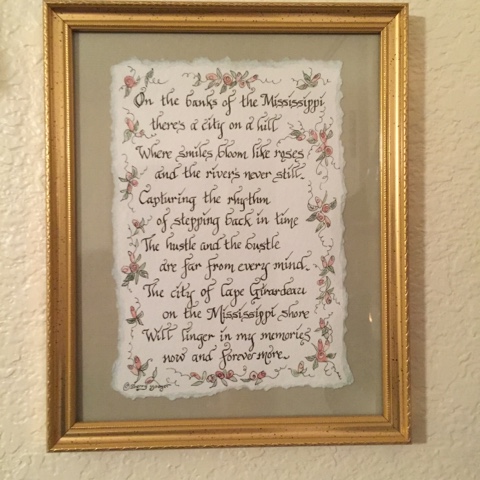 On the banks of the Mississippi
there's a city on a hill.
Where smiles bloom like roses
and the river's never still.
Capturing the rhythm
of stepping back in time
The hustle and the bustle
are far from every mind.
The city of Cape Girardeau
on the Mississippi shore
Will linger in my memories
now and forevermore.